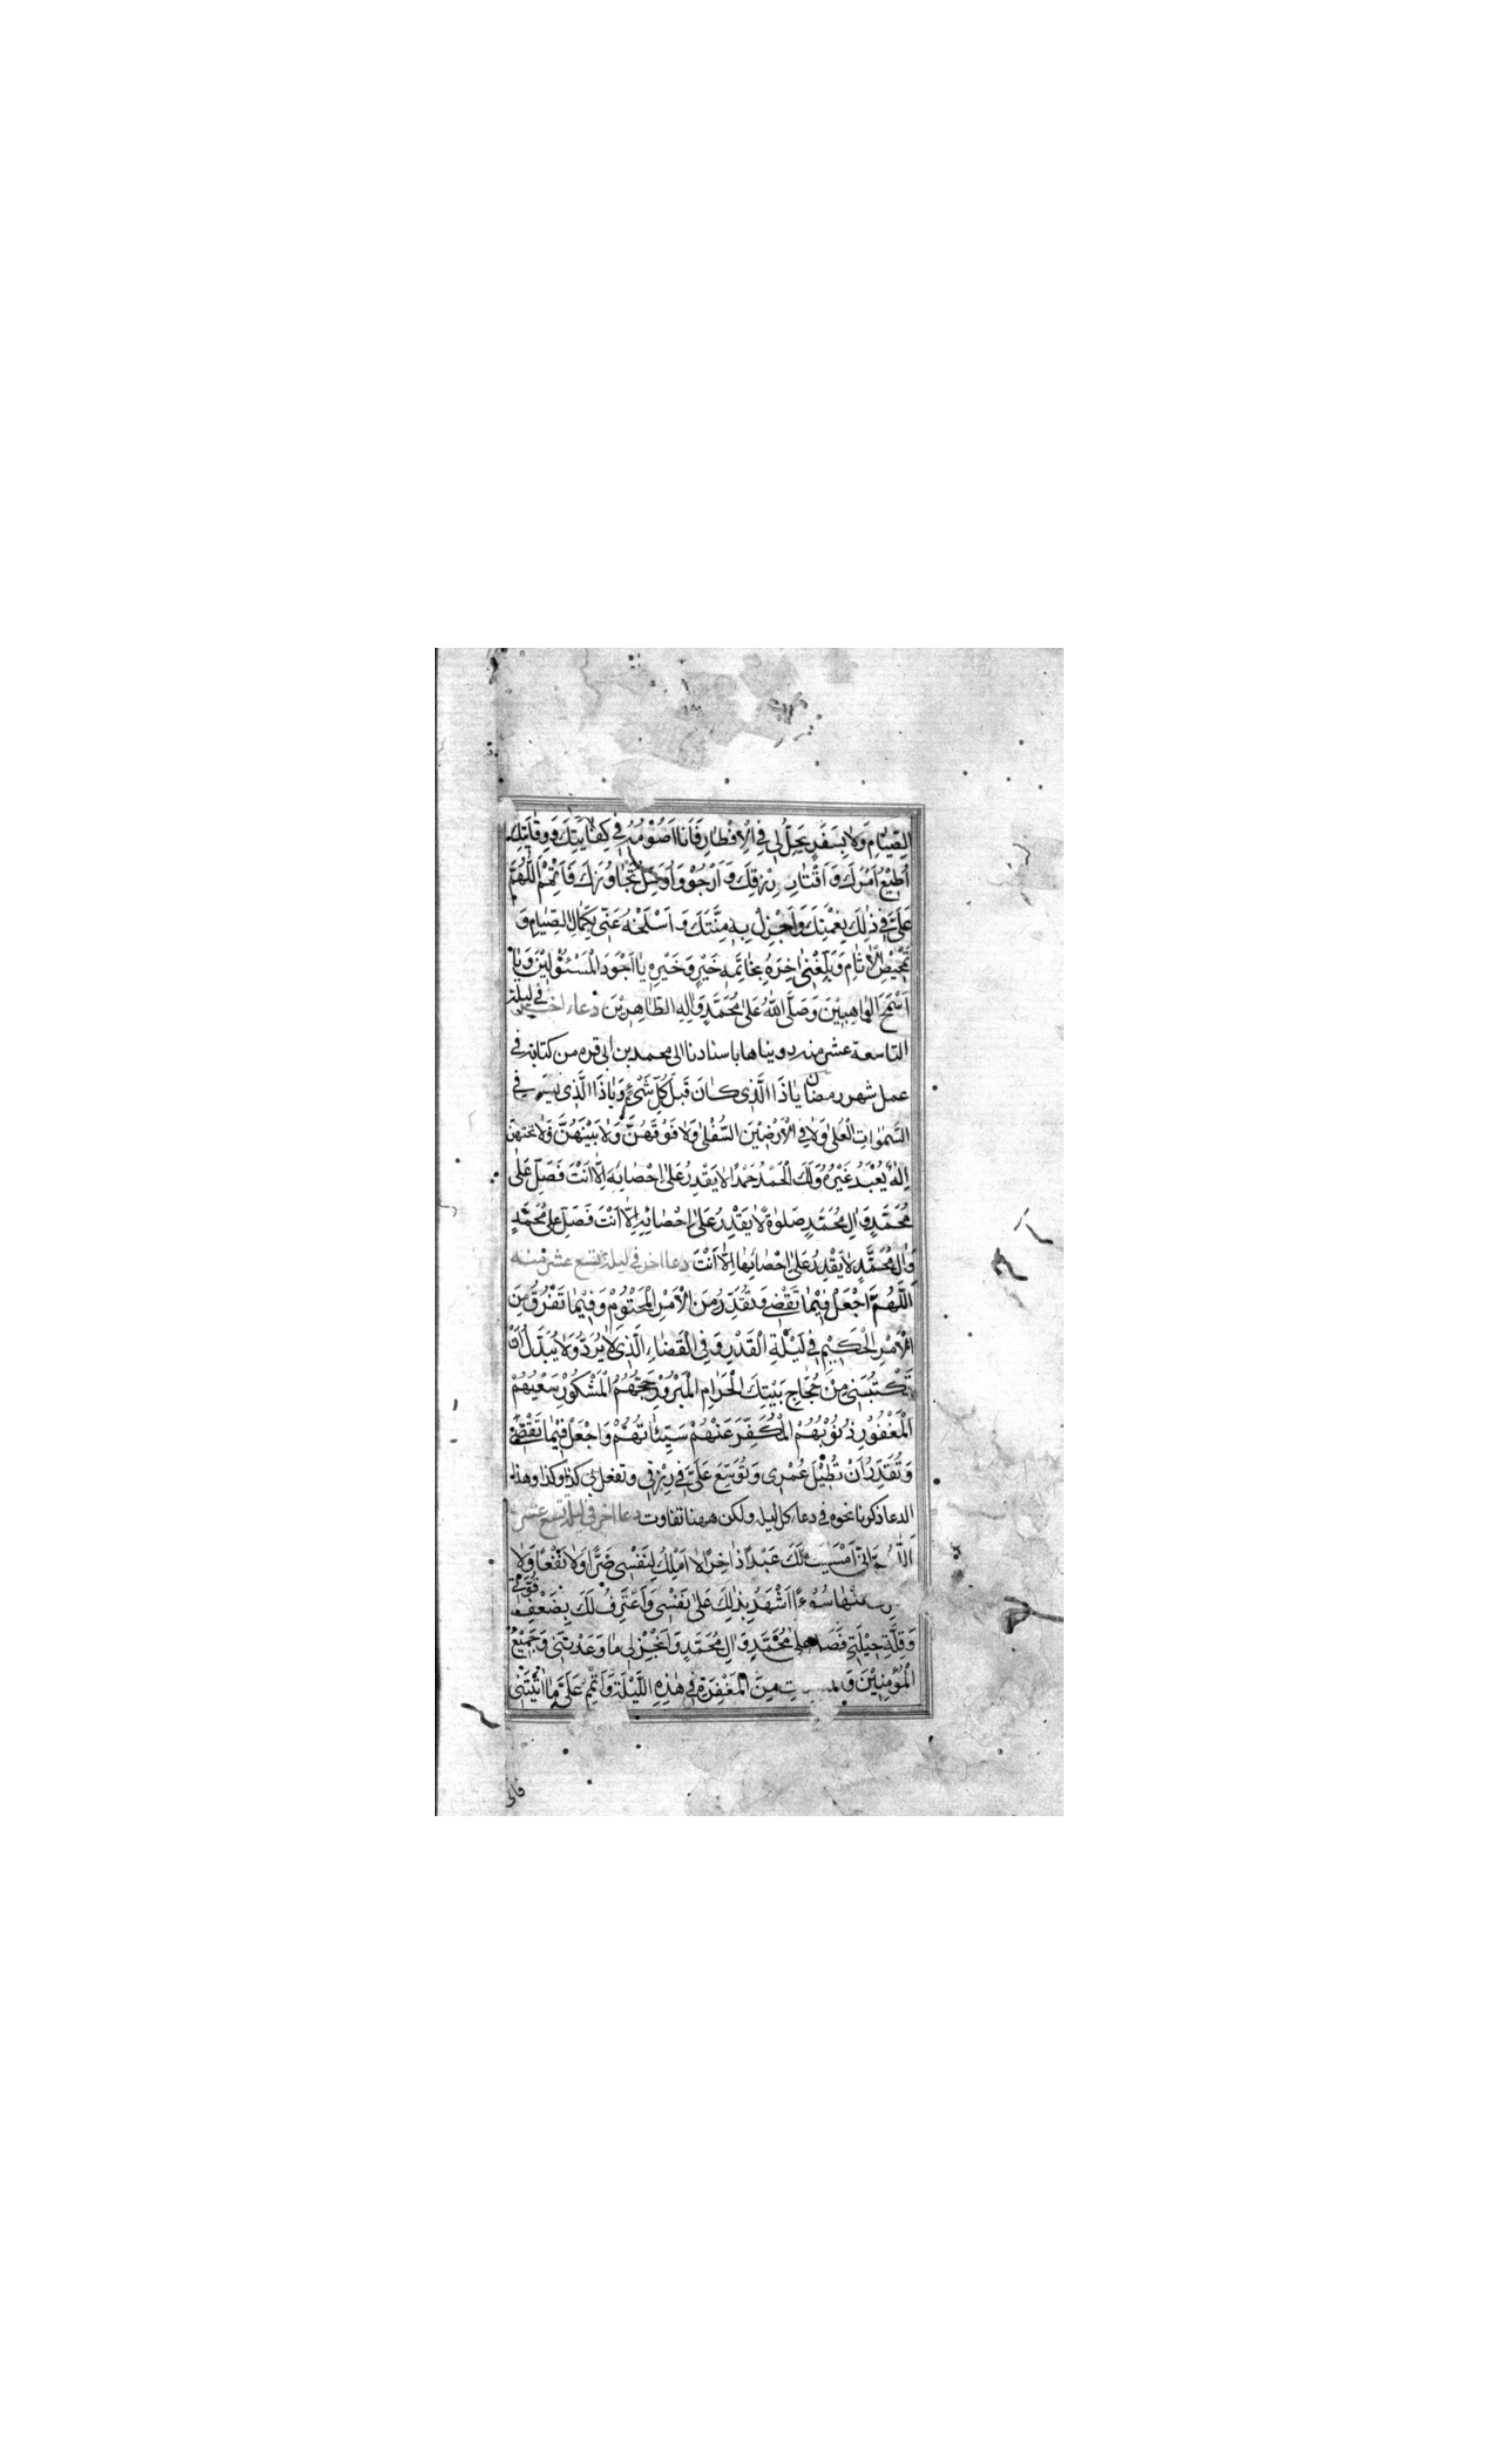 الصِّيٰامِ وَلاٰ بِسَفَرٍ يَحِلُّ لِي فِي الْاِفْطٰارِ فَاَنَا اَصُوْمُهُ فِي كِفٰايَتِكَ وَوِقٰايَتِكَ
اُطِيْعُ اَمْرَكَ وَاَقْتٰاتُ رِزْقَكَ وَاَرْجُوْ وَاُؤَمِّلُ تَجٰاوُزَكَ فَاَتْمِمْ اَللّٰهُمَّ
عَلَيَّ فِي ذٰلِكَ نِعْمَتَكَ وَاَجْزِلْ بِهِ مِنَّتَكَ وَاسْلَخْهُ عَنِّي بِكَمٰالِ الصِّيٰامِ وَ
تَمْحِيْصِ الْاٰثٰامِ وَبَلِّغْنِي اٰخِرَهُ بِخٰاتِمَةِ خَيْرٍ وَخَيْرِهِ يٰا اَجْوَدَ الْمَسْئُوْلِيْنَ وَيٰا
اَسْمَحَ الْوٰاهِبِيْنَ وَصَلَّى اللّٰهُ عَلىٰ مُحَمَّدٍ وَاٰلِهِ الطّٰاهِرِيْنَ دعاء اخر في ليلة
التاسعة عشر منه رويناها باسنادنا الى محمد بن ابى قره من كتابه في
عمل شهر رمضان يٰا ذَا الَّذِي كٰانَ قَبْلَ كُلِّ شَيْءٍ وَيٰا ذَا الَّذِي لَيْسَ فِي
السَّمٰوٰاتِ الْعُلىٰ وَلاٰ فِي الْاَرَضِيْنَ السُّفْلىٰ وَلاٰ فَوْقَهُنَّ وَلاٰ بَيْنَهُنَّ وَلاٰ تَحْتَهُنَّ
اِلٰهٌ يُعْبَدُ غَيْرُهُ وَلَكَ الْحَمْدُ حَمْدًا لاٰ يَقْدِرُ عَلىٰ اِحْصٰائِهِ اِلاّٰ اَنْتَ فَصَلِّ عَلىٰ
مُحَمَّدٍ وَاٰلِ مُحَمَّدٍ صَلوٰةً لاٰ يَقْدِرُ عَلىٰ اِحْصٰائِهِ اِلاّٰ اَنْتَ فَصَلِّ عَلىٰ مُحَمَّدٍ
وَاٰلِ مُحَمَّدٍ لاٰ يَقْدِرُ عَلىٰ اِحْصٰائِهٰا اِلاّٰ اَنْتَ دعا اخر في ليلة تسع عشر منه
اَللّٰهُمَّ اجْعَلْ فِيْمٰا تَقْضِي وَتُقَدِّرُ مِنَ الْاَمْرِ الْمَحْتُوْمِ وَفِيْمٰا تَفْرُقُ مِنَ
الْاَمْرِ الْحَكِيْمِ فِي لَيْلَةِ الْقَدْرِ وَفِي الْقَضٰاءِ الَّذِي لاٰ يُرَدُّ وَلاٰ يُبَدَّلُ اَنْ
تَكْتُبَنِي مِنْ حُجّٰاجِ بَيْتِكَ الْحَرٰامِ الْمَبْرُوْرِ حَجُّهُمُ الْمَشْكُوْرِ سَعْيُهُمْ
الْمَغْفُوْرِ ذُنُوْبُهُمْ الْمُكَفَّرِ عَنْهُمْ سَيِّئٰاتُهُمْ وَاجْعَلْ فِيْمٰا تَقْضِي
وَتُقَدِّرُ اَنْ تُطِيْلَ عُمْرِي وَتُوَسِّعَ عَلَيَّ فِي رِزْقِي وتفعل بي كذا وكذا وهذا
الدعا ذكرنا نحوه في دعاء كل ليله ولكن ههنا تفاوت دعا اخر في ليلة تسع عشر
اِنِّي اَمْسَيْتُ لَكَ عَبْدًا دٰاخِرًا لاٰ اَمْلِكُ لِنَفْسِي ضَرًّا وَلاٰ نَفْعًا وَلاٰ
عَنْهٰا سُوْءًا اَشْهَدُ بِذٰلِكَ عَلىٰ نَفْسِي وَاَعْتَرِفُ لَكَ بِضَعْفِ قُوَّتِي
وَقِلَّةِ حِيْلَتِي فَصَلِّ عَلىٰ مُحَمَّدٍ وَاٰلِ مُحَمَّدٍ وَاَنْجِزْ لِي مٰا وَعَدْتَنِي وَجَمِيْعَ
الْمُؤْمِنِيْنَ مِنَ الْمَغْفِرَةِ فِي هٰذِهِ اللَّيْلَةِ وَاَتْمِمْ عَلَيَّ مٰا اٰتَيْتَنِي
فانى